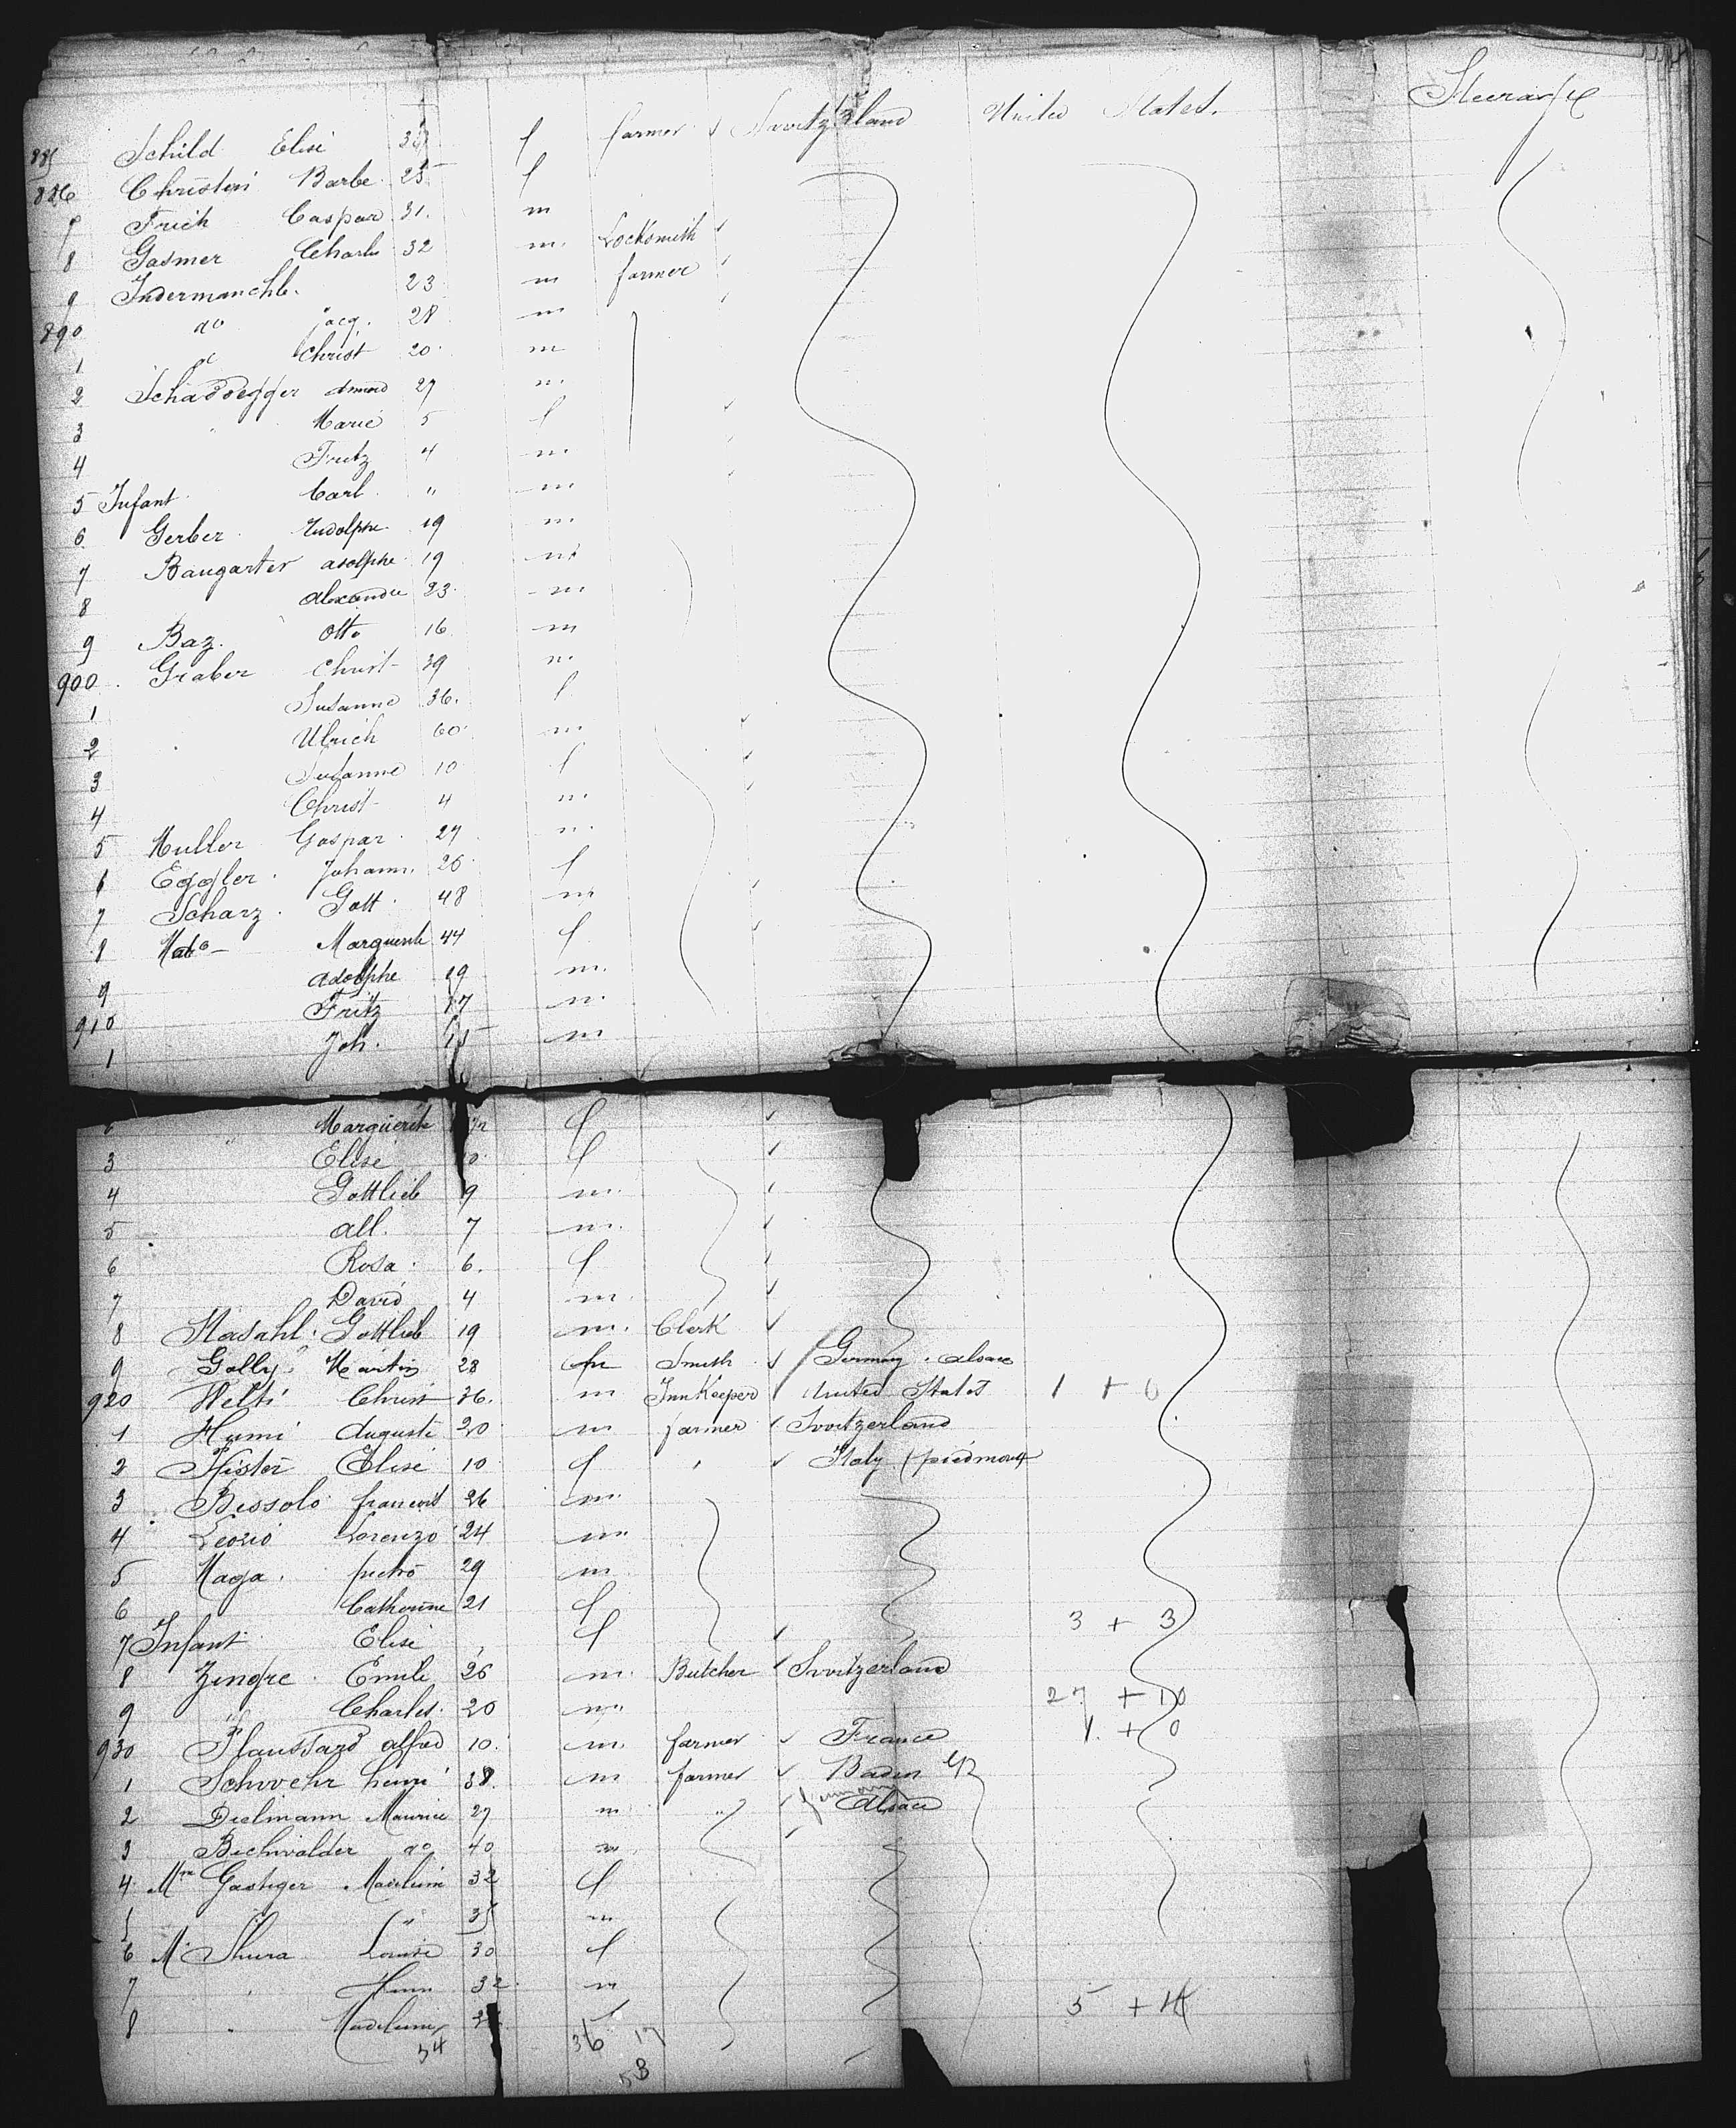 885 Schild Elise f farmer Switzerland United States. Steerage
886 Christen Barbe 25 f
Frich Caspar 31. m
8 Gasmer Charles 32 m. Locksmith
9 Indermanchle. 23 m farmer
890 do jacq. 28 m
1 Christ 20 m
2 Schaddegger 27 m
3 Marie 5 f
4 Fritz 4 m
5 Infant Carl " m
6 Gerber Rudolphe 19 m
7 Baugarter adolphe 19 m
8 Alexandre 23. m
9 Baz. Otto 16 m
900 Graber Christ 39 m
1 Susanne 36. f
2 Ulrich 60 m
3 Susanne 10 f
4 Christ 4 m
5 Muller Gaspar 27 m
6 Eggler Johann. 26 f
7 Scharz Gott. 48 m
8 Marguerite 44 f
9 Adolphe 19 m.
910 Fritz 17 m.
1 Joh. 15 m
Marguerite f
3 Elise f
4 Gottlieb 9 m.
5 all. 7 m.
6 Rosa 6. f
7 David 4 m.
8 Gottlieb 19 m. Clerk
9 Golly Martin 28 Smith Germany. alsace
920 Welti Christ 36. m InnKeeper United States 1 + 0
1 Humi Auguste 20 m farmer Switzerland
2 Elise 10 f Italy (piedmont
3 Bessolo francois 26 m.
4 Lorenzo 24 m
5 Maga. pietro 29 m
6 Catherine 21 f 3 + 3
7 Infant Elise f
8 Zingre Emile 26 m. Butcher Switzerland
9 " Charles. 20 m. 27 + 10
930 alfred 10. m. farmer France 1. + 0
1 Schwehr henri 38. m farmer Baden
2 Dielmann Maurice 27 m " Germany Alsace
3 Bechwalder do 40 m
4 Mme Gastiger Madeleine 32 f
5 " 35 m
6 Louise 30 f
7 32 m
8 Madeleine 5 +
54 36 17
53